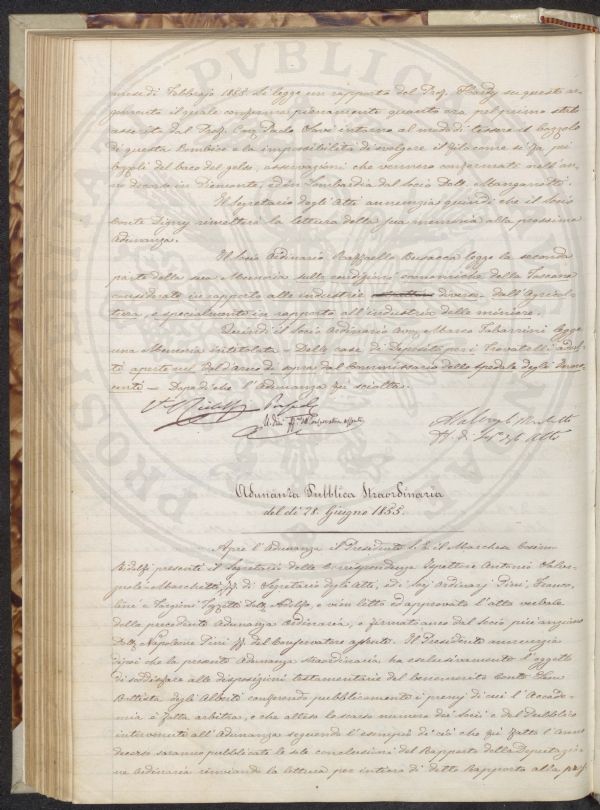 mese di Febbrajo 1855. Si legge un rapporto del Prof. Hardy su questo ar-
gomento il quale conferma pienamente quanto era pel primo stato
asserito dal Prof. Cav. Paolo Savi intorno al modo di tessere il bozzolo
di questo Bombice e la impossibilità di svolgere il filo come si fa pei
bozzoli del baco del gelso, asserzioni che vennero confermate nell'an-
no decorso in Piemonte, ed in Lombardia dal Socio Dott. Manganotti.
Il Segretario degli Atti annunzia quindi che il Socio
Conte Digny rimetterà la lettura della sua memoria alla prossima
Adunanza.
Il Socio Ordinario Raffaello Busacca legge la seconda
parte della sua Memoria sulle condizioni economiche della Toscana
considerate in rapporto alle industrie diverse dall'Agricol-
tura, e specialmente in rapporto all'industria delle miniere.
Quindi il Socio Ordinario Avv. Marco Tabarrini legge
una Memoria intitolata - Delle case di Deposito per i Trovatelli adul-
ti aperte nel Val d'Arno di sopra dal Commissario dello Spedale degli Inno-
centi - Dopo di che l'Adunanza fu sciolta.
V. Ridolfi
ff. di Seg. degli Atti
Adunanza Pubblica Straordinaria
del dì 28. Giugno 1855.
Apre l'Adunanza il Presidente S. E. il Marchese Cosimo
Ridolfi presenti il Segretario delle Corrispondenze Ispettore Antonio Salva-
gnoli-Marchetti ff. di Segretario degli Atti, ed i Socj Ordinarj Pini, Franco-
lini e Targioni Tozzetti Dott. Adolfo, e vien letto ed approvato l'atto verbale
della precedente Adunanza Ordinaria, e firmato anco dal Socio più anziano
Dott. Napoleone Pini ff. del Conservatore assente. Il Presidente annunzia
dipoi che la presente Adunanza straordinaria, ha esclusivamente l'oggetto
di soddisfare alle disposizioni testamentarie del benemerito Conte Leon
Battista degli Alberti conferendo pubblicamente i premj di cui l'Accade-
mia è fatta arbitra, e che atteso lo scarso numero dei Socii e del Pubblico
intervenuto all'Adunanza seguendo l'esempio di ciò che fu fatto l'anno
decorso saranno pubblicate le sole conclusioni del Rapporto della Deputazio-
ne Ordinaria rinviando la lettura per intiero di detto Rapporto alla pros-